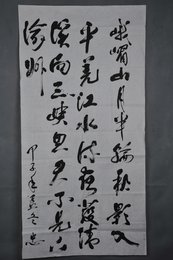 峨嵋山月半輪秋影入
平羌江水流夜發清
溪向三峽思君不見下
渝州
甲子